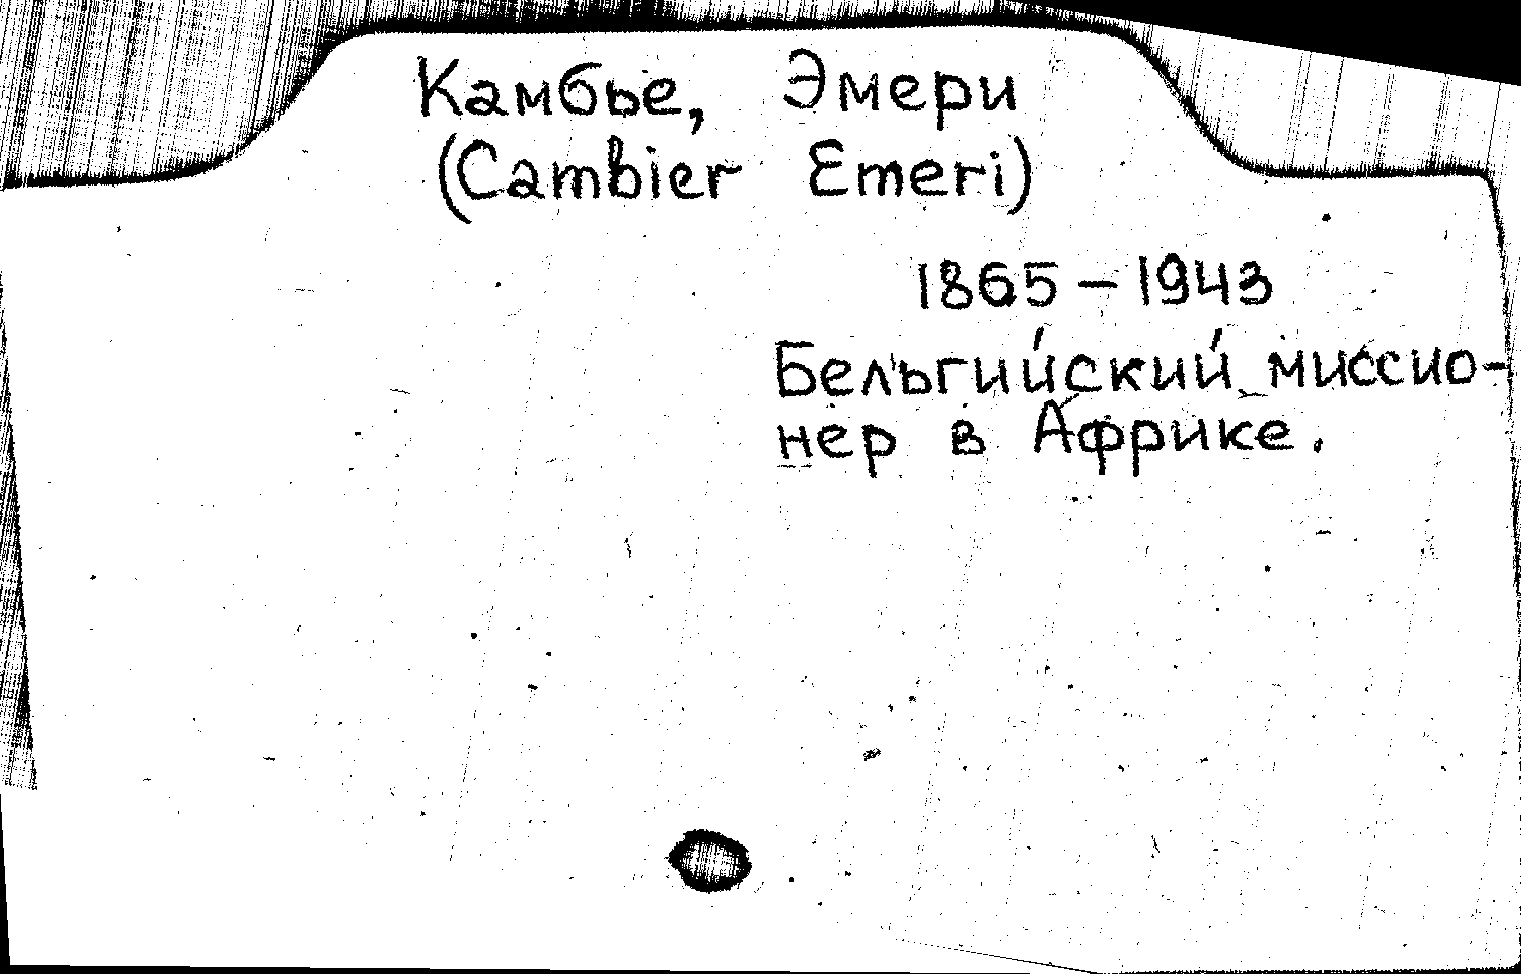 Камбье, Эмери
(Cambier Emeri)
1865 – 1943
Бельгийский миссио-
нер в Африке.